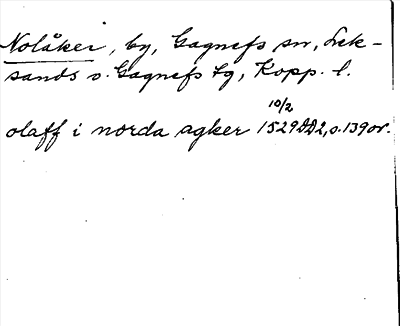 Nolåker, by, Gagnefs sn, Lek-
sands o. Gagnefs tg, Kopp. l.
10/2
olaff i norda agker 1529 DD2, s. 139 or.